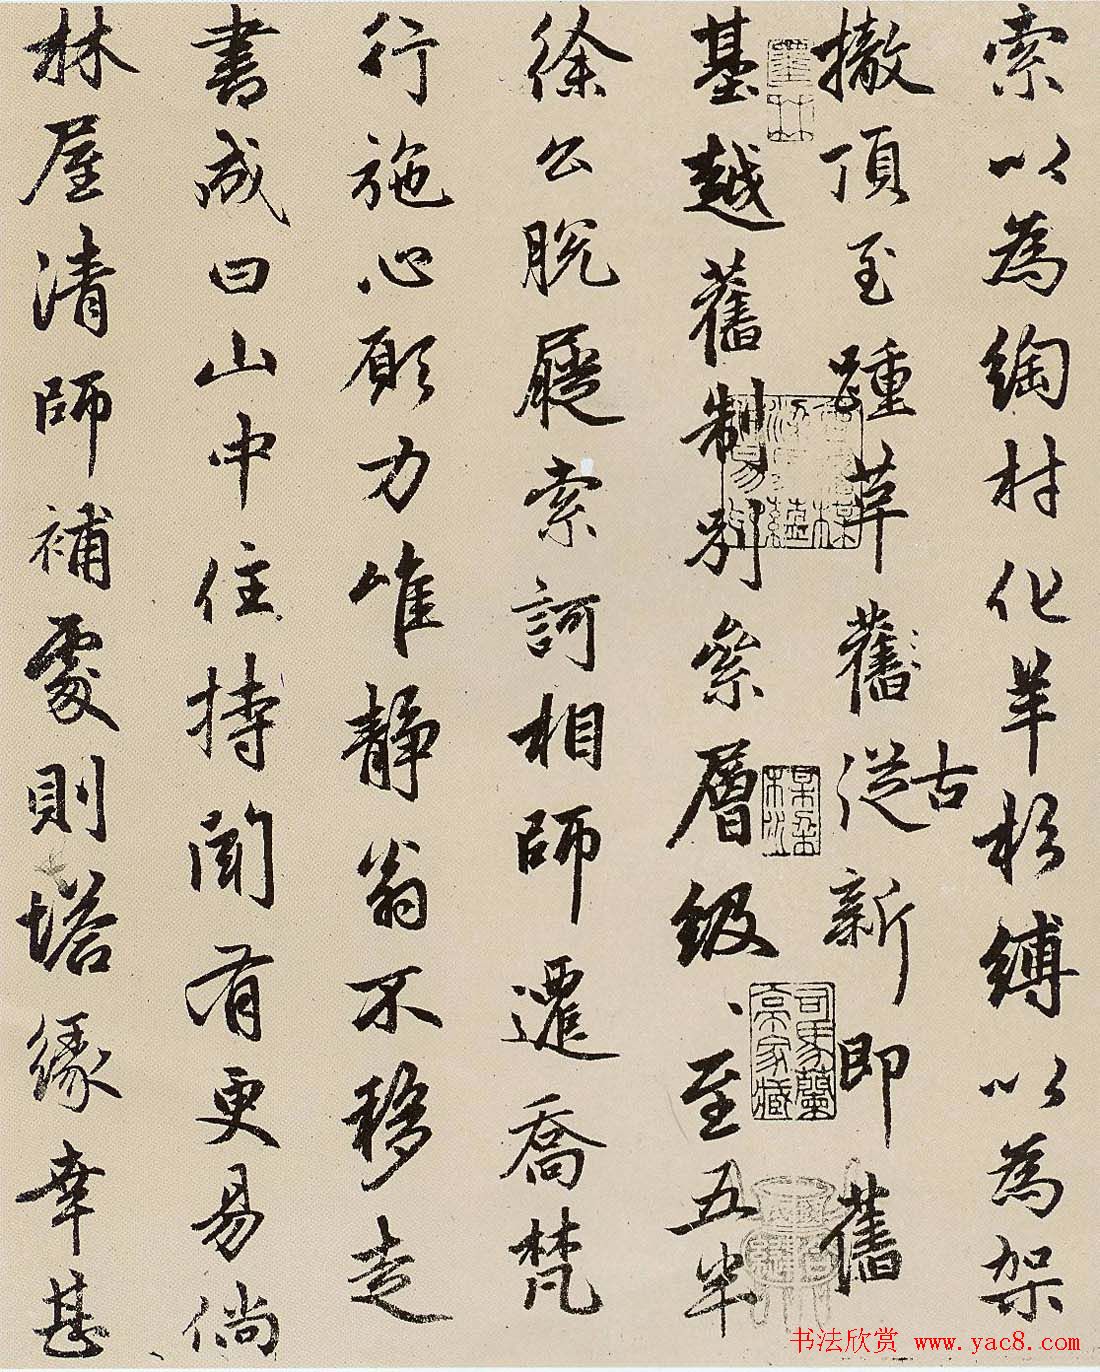 索以為綯村化羊杉縛以為架
撤頂至踵革舊從新即舊
古
基越舊制別參層級、至五半
徐公脫屣索訶相師遷喬梵
行施心願力唯靜翁不移走
書成曰山中住持間有更易倘
林屋清師補處則塔緣幸甚
墨林
司馬蘭亭家藏
书法欣赏 www.yac8.com